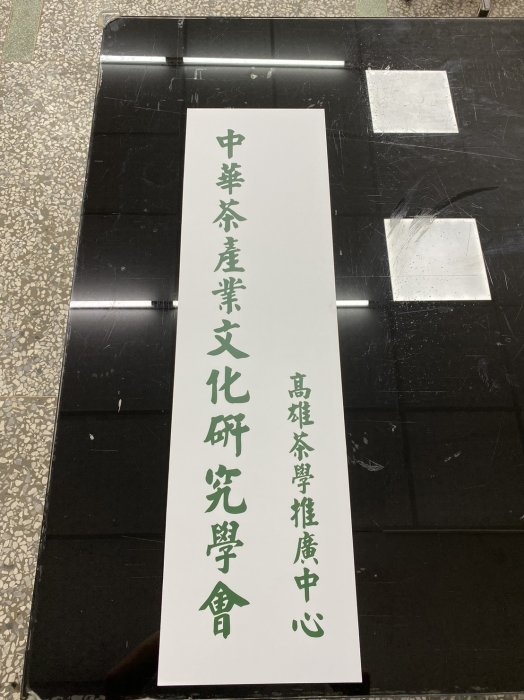 中華茶產業文化研究學會
高雄茶學推廣中心